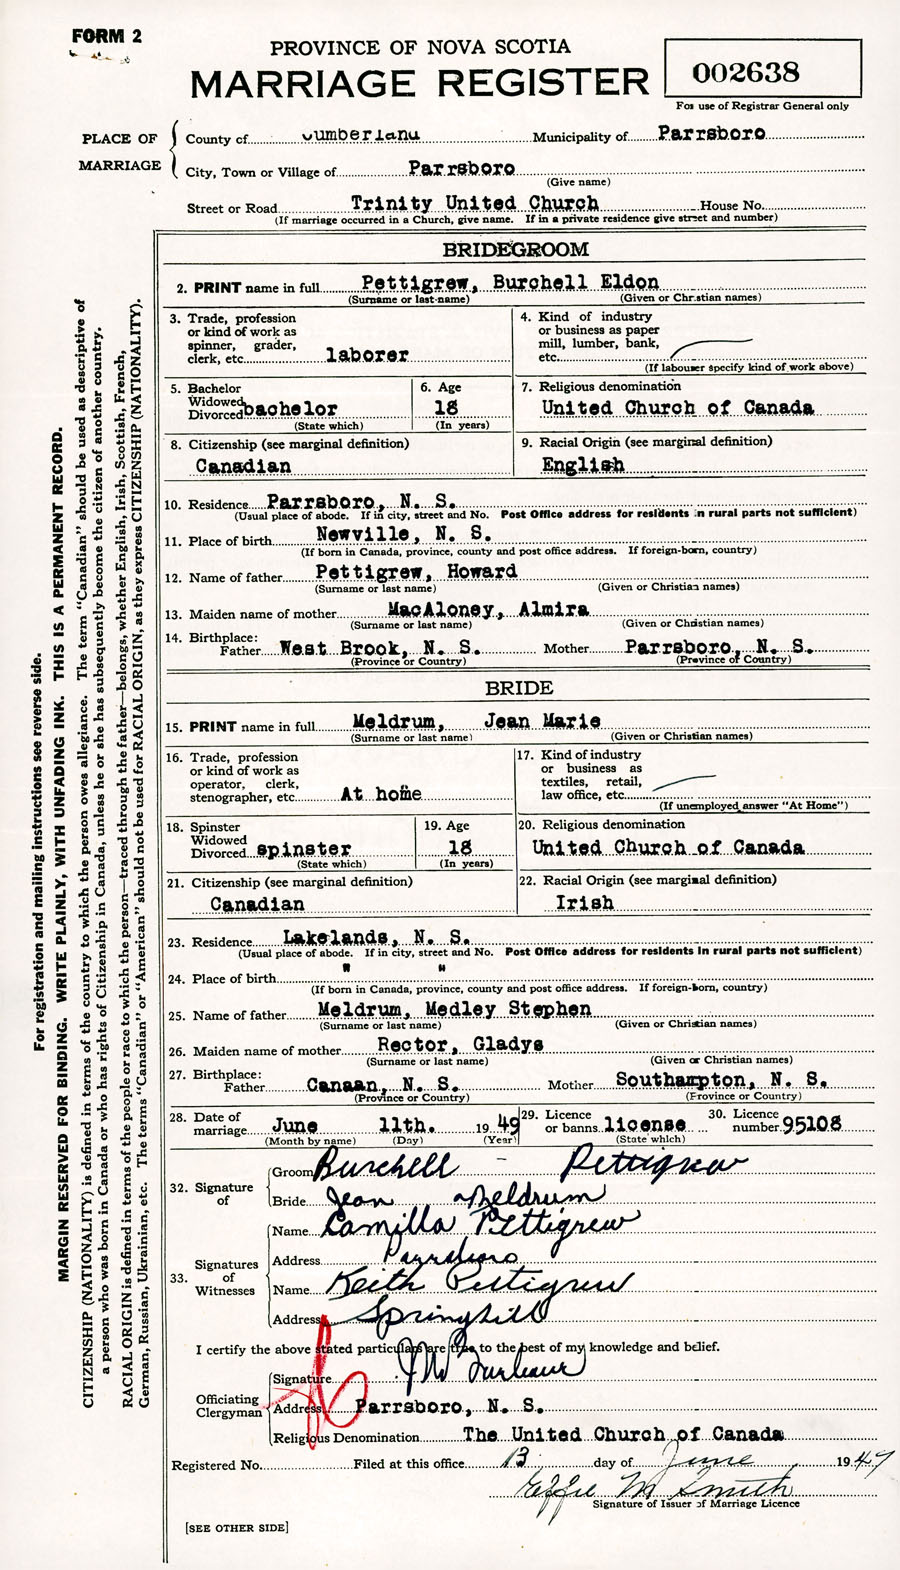 FORM 2
PROVINCE OF NOVA SCOTIA
MARRIAGE REGISTER
002638
For use of Registrar General only
PLACE OF MARRIAGE
County of Cumberland Municipality of Parrsboro
City, Town or Village of Parrsboro
(Give name)
Street or Road Trinity United Church House No.
(If marriage occurred in a Church, give name. If in a private residence give street and number)
BRIDEGROOM
2. PRINT name in full Pettigrew, Burchell Eldon
(Surname or last name) (Given or Christian names)
3. Trade, profession or kind of work as spinner, grader, clerk, etc. laborer
4. Kind of industry or business as paper mill, lumber, bank, etc.
(If labourer specify kind of work above)
5. Bachelor Widowed Divorced bachelor
(State which)
6. Age 18
(In years)
7. Religious denomination
United Church of Canada
8. Citizenship (see marginal definition)
Canadian
9. Racial Origin (see marginal definition)
English
10. Residence Parrsboro, N. S.
(Usual place of abode. If in city, street and No. Post Office address for residents in rural parts not sufficient)
11. Place of birth Newville, N. S.
(If born in Canada, province, county and post office address. If foreign-born, country)
12. Name of father Pettigrew, Howard
(Surname or last name) (Given or Christian names)
13. Maiden name of mother MacAloney, Almira
(Surname or last name) (Given or Christian names)
14. Birthplace: Father West Brook, N. S. Mother Parrsboro, N. S.
(Province or Country) (Province or Country)
BRIDE
15. PRINT name in full Meldrum, Jean Marie
(Surname or last name) (Given or Christian names)
16. Trade, profession or kind of work as operator, clerk, stenographer, etc. At home
17. Kind of industry or business as textiles, retail, law office, etc.
(If unemployed answer "At Home")
18. Spinster Widowed Divorced spinster
(State which)
19. Age 18
(In years)
20. Religious denomination
United Church of Canada
21. Citizenship (see marginal definition)
Canadian
22. Racial Origin (see marginal definition)
Irish
23. Residence Lakelands, N. S.
(Usual place of abode. If in city, street and No. Post Office address for residents in rural parts not sufficient)
24. Place of birth " "
(If born in Canada, province, county and post office address. If foreign-born, country)
25. Name of father Meldrum, Medley Stephen
(Surname or last name) (Given or Christian names)
26. Maiden name of mother Rector, Gladys
(Surname or last name) (Given or Christian names)
27. Birthplace: Father Canaan, N. S. Mother Southampton, N. S.
(Province or Country) (Province or Country)
28. Date of marriage June 11th. 1949
(Month by name) (Day) (Year)
29. Licence or banns license
(State which)
30. Licence number 95108
32. Signature of
Groom Burchell Pettigrew
Bride Jean Meldrum
33. Signatures of Witnesses
Name Camilla Pettigrew
Address Parrsboro
Name Keith Pettigrew
Address Springhill
I certify the above stated particulars are true to the best of my knowledge and belief.
Officiating Clergyman
Signature
Address Parrsboro, N. S.
Religious Denomination The United Church of Canada
Registered No. Filed at this office 13 day of June 1947
Effie M Smith
Signature of Issuer of Marriage Licence
[SEE OTHER SIDE]
For registration and mailing instructions see reverse side.
MARGIN RESERVED FOR BINDING. WRITE PLAINLY, WITH UNFADING INK. THIS IS A PERMANENT RECORD.
CITIZENSHIP (NATIONALITY) is defined in terms of the country to which the person owes allegiance. The term "Canadian" should be used as descriptive of
a person who was born in Canada or who has rights of Citizenship in Canada, unless he or she has subsequently become the citizen of another country.
RACIAL ORIGIN is defined in terms of the people or race to which the person—traced through the father—belongs, whether English, Irish, Scottish, French,
German, Russian, Ukrainian, etc. The terms "Canadian" or "American" should not be used for RACIAL ORIGIN, as they express CITIZENSHIP (NATIONALITY).